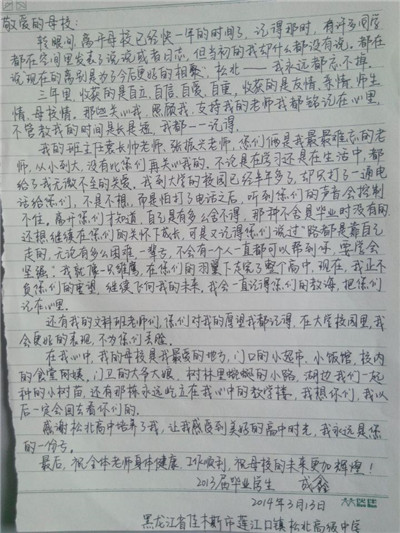 敬爱的母校:
转眼间,离开母校已经快一年的时间了,记得那时,有许多同学
都在空间里发表了说说或者日志,但当初的我却什么都没有说。都在
说"现在的离别是为了今后更好的相聚。松北——我永远都忘不掉。
三年里,收获的是自立、自信、自爱、自重。收获的是友情、亲情、师生
情、母校情。那些关心我、照顾我、支持我的老师我都铭记在心里,
不管教我的时间是长是短,我都一一记得。
我的班主任袁长帅老师,张振兴老师,你们俩是我最最难忘的老
师,从小到大,没有比你们再关心我的,不论是在学习还是在生活中,都
给了我无微不至的关爱。我到大学的校园已经半年多了,却只打了一通电
话给你们,不是不想,而是怕打了电话之后,听到你们的声音会控制
不住。离开你们才知道,自己是有多么舍不得,那种不会是毕业时没有的
还想继续在你们的关怀下成长,可是又记得你们说过"路都是靠自己
走的,无论有多么困难,一辈子,不会有一个人一直都可以帮到你,要学会
坚强。我就像一只雏鹰,在你们的羽翼下走完了整个高中,现在,我正不
负你们的重望,继续飞向我的未来,我会一直记得你们的教诲,把你们
记在心里。
还有我的文科班老师们,你们对我的厚望我都记得,在大学校园里,我
会更好的表现,不为你们丢脸。
在我心中,我的母校是我最爱的地方,门口的小超市、小饭馆,校内
的食堂的姨、门卫的大爷大娘、树林里蜿蜒的小路、湖边我们一起
种的小树苗,还有那栋永远屹立在我心中的教学楼。我想你们,我以
后一定会回去看你们的。
感谢松北高中培养了我,让我感受到美好的高中时光,我永远是您
的一份子。
最后,祝全体老师身体健康,工作顺利,祝母校的未来更加辉煌!
2013届毕业生 成鑫
2014年3月13日
黑龙江省佳木斯市莲江口镇松北高级中学